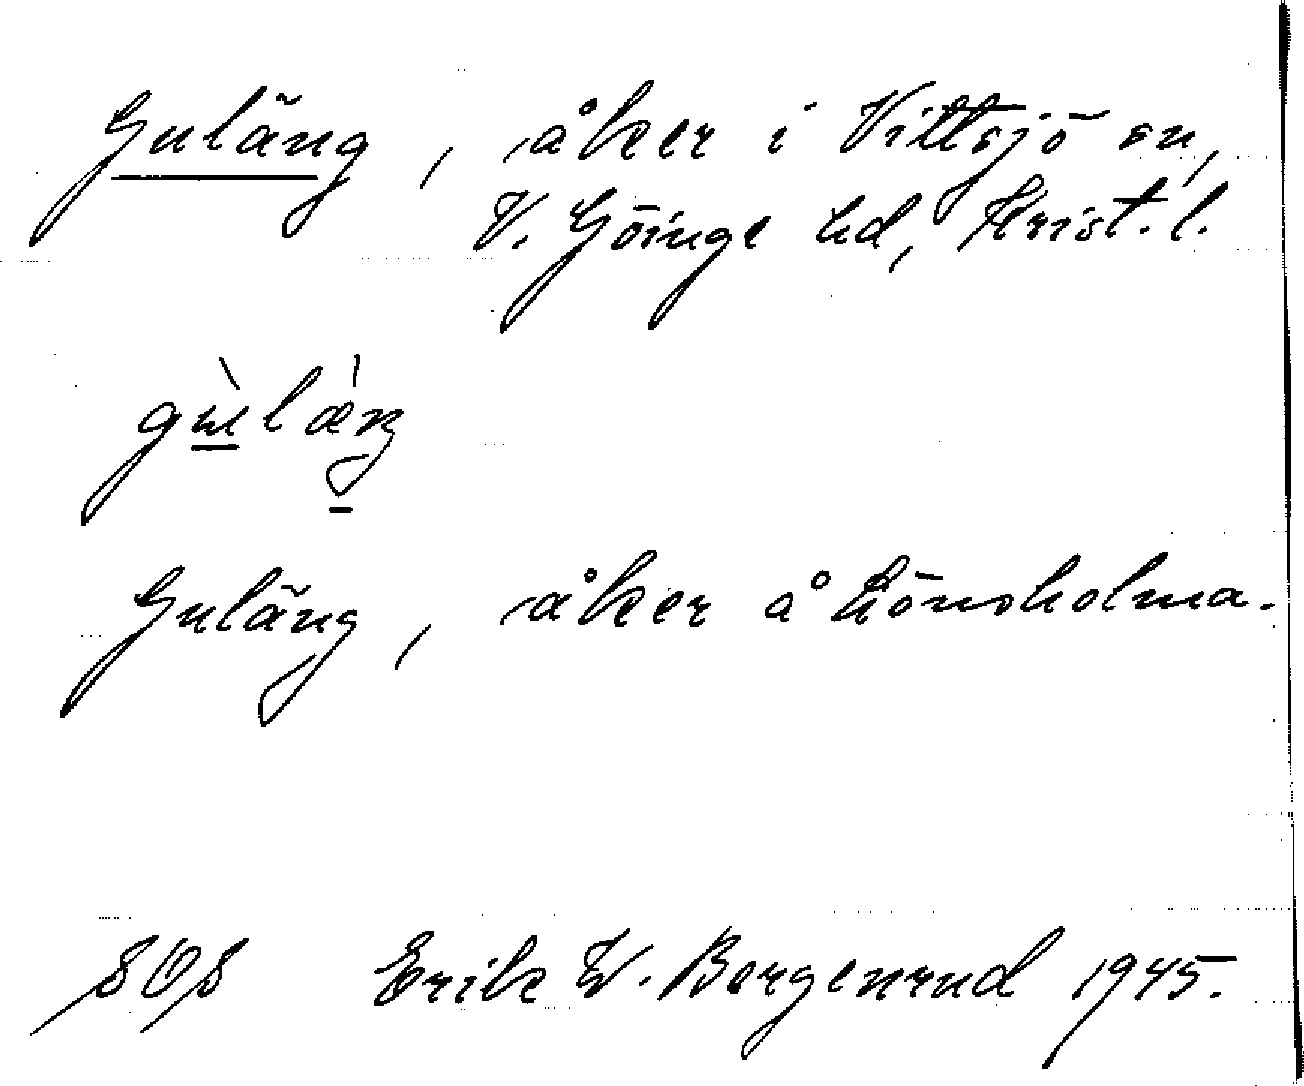 Guläng, åker i Vittsjö sn,
V. Göinge hd, Krist. l.
gùlæ̀ŋ
Guläng, åker å Hönsholma.
SOS Erik W. Bergenrud 1945.